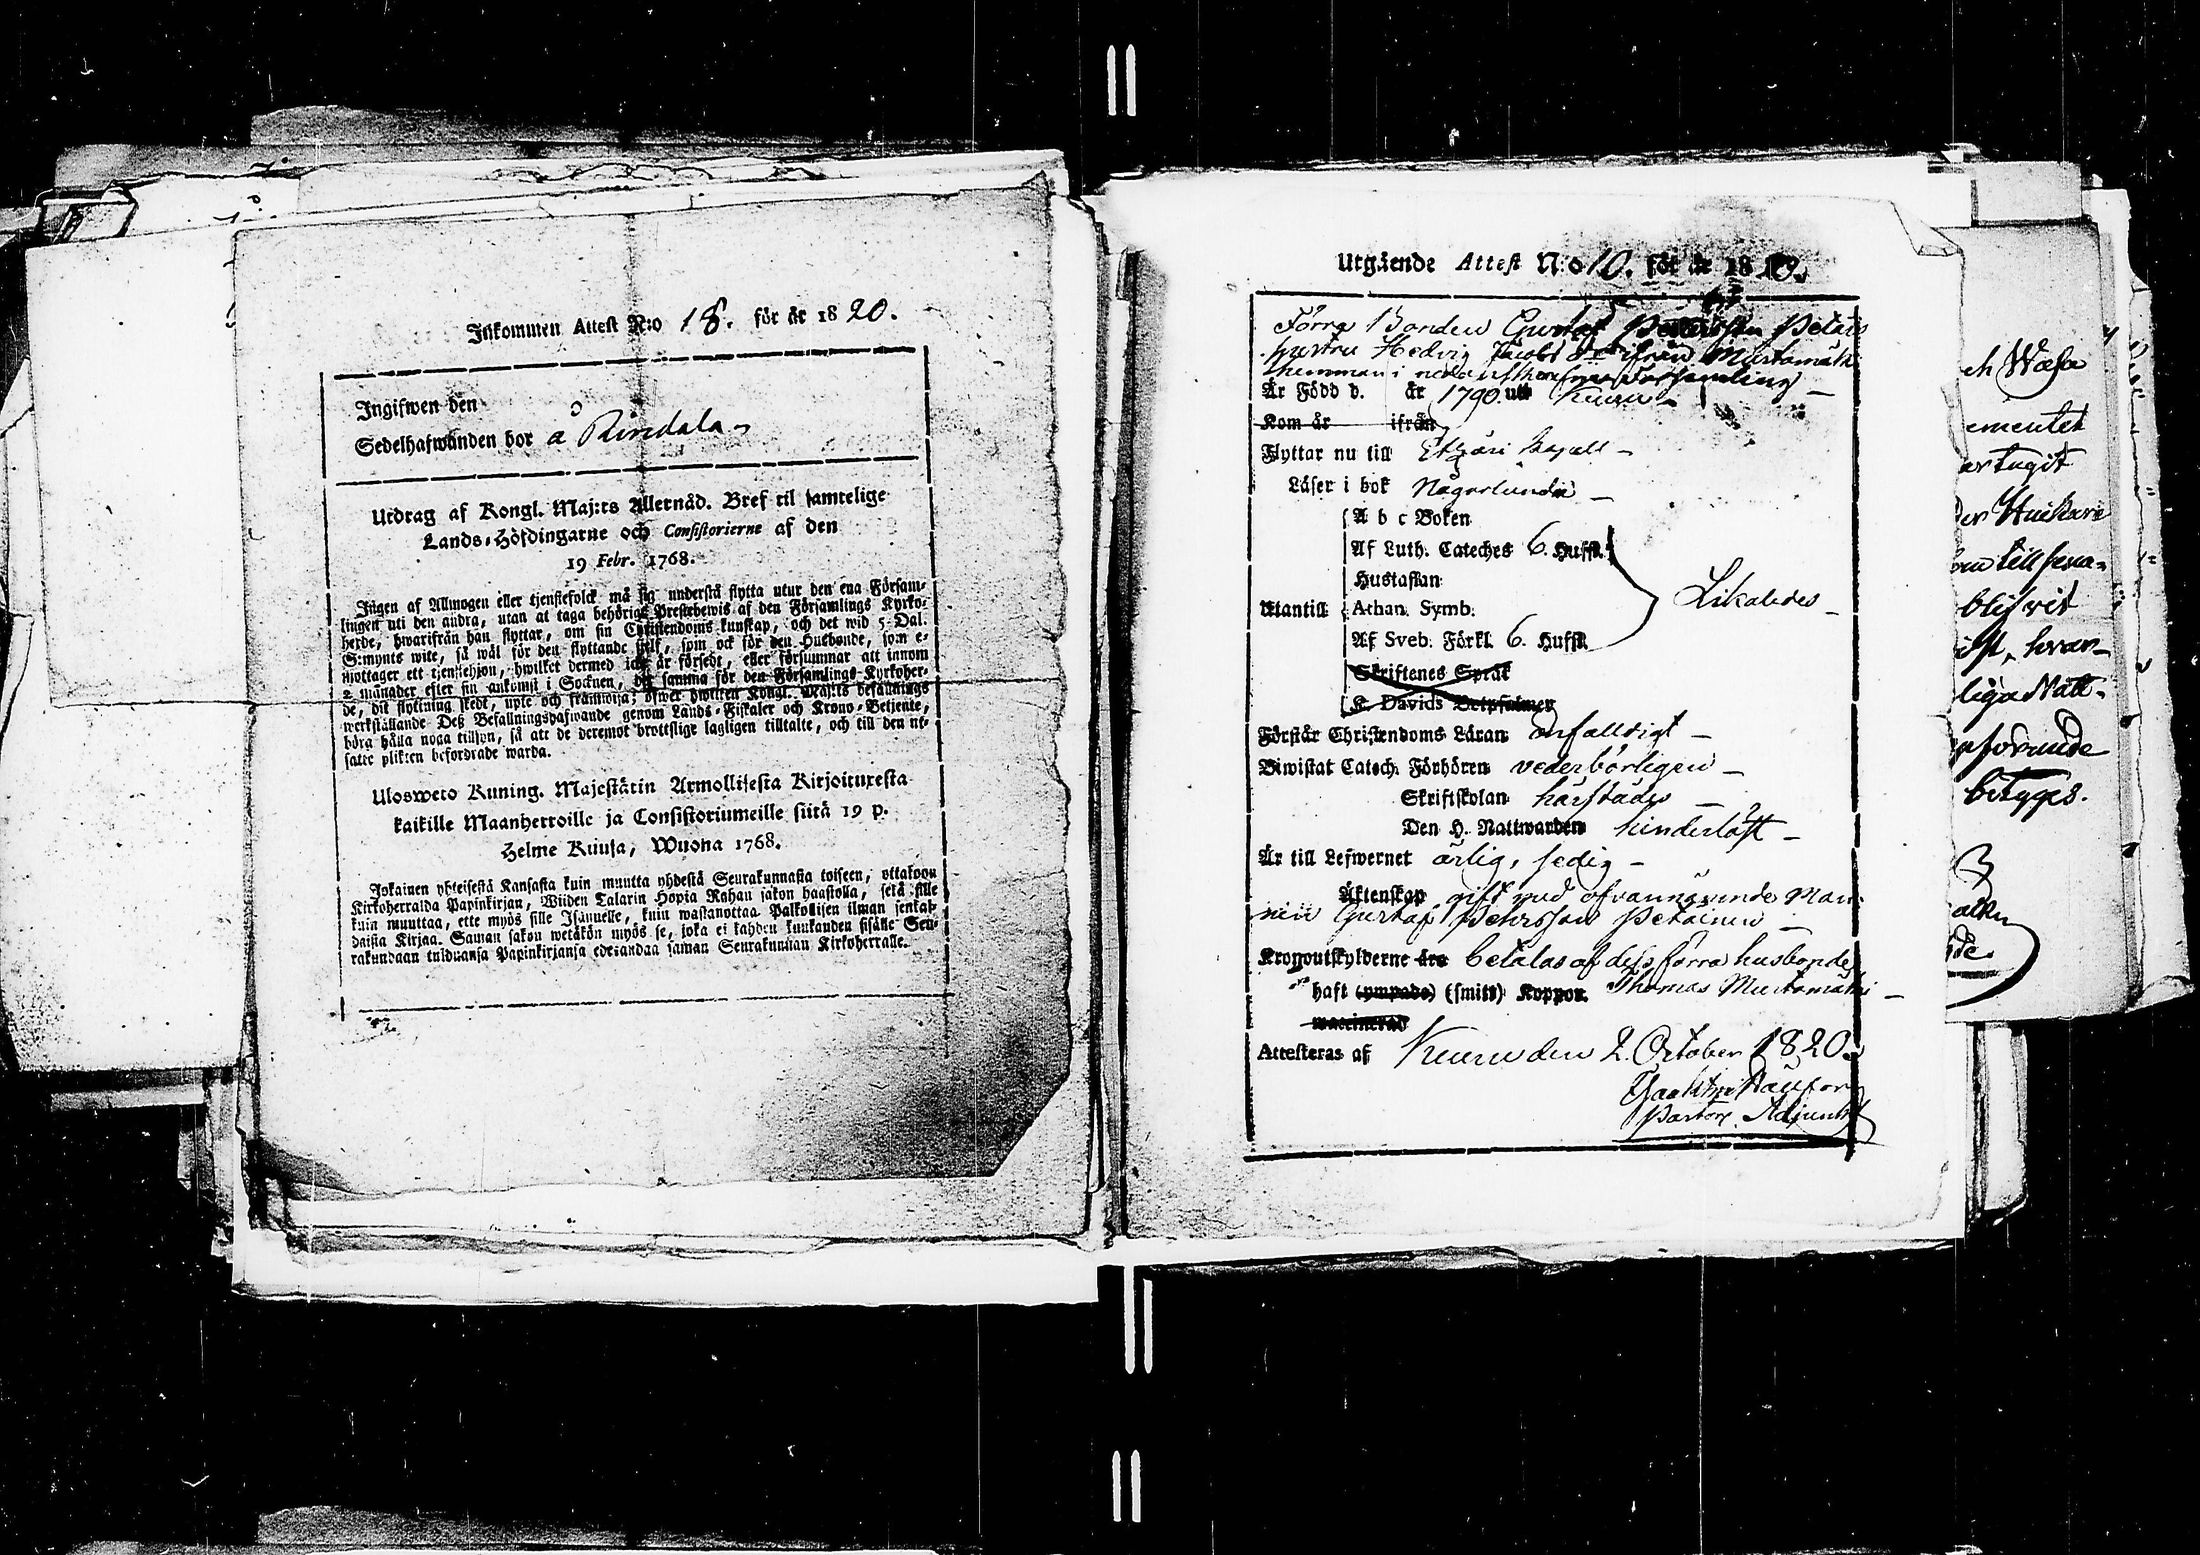 Inkommen Attest N:o 18. för år 1820.
Ingifwen den
Sedelhafwanden bor å Rindala
Utdrag af Kongl. Maj:ts Allernåd. Bref til samtelige
Lands-Höfdingarne och Consistorierne af den
19 Febr. 1768.
Ingen af Allmogen eller tjenstefolck må sig understå flytta utur den ena Försam-
lingen uti den andra, utan at taga behörigt Prestebewis af den Församlings Kyrko-
herde, hwarifrån han flyttar, om sin Christendoms kunskap, och det wid 5 Dal.
S:mynts wite, så wäl för den flyttande sielf, som ock för den Husbonde, som e-
mottager ett tjenstehjon, hwilket dermed icke är försedt, eller försummar att innom
2 månader efter sin ankomst i Socknen, det samma för den Församlings Kyrkoher-
de, dit flyttning skedt, upte och framwisa; öfwer hwilket Kongl. Maj:ts befallnings
werkställande Deß Befallningshafwande genom Lands-Fiskaler och Krono-Betjente,
böra hålla noga tillsyn, så att de deremot brottslige lagligen tilltalte, och till den ut-
satte plikten befordrade warda.
Ulosweto Kuning. Majestätin Armollisesta Kirjoituxesta
kaikille Maanherroille ja Consistoriumeille siitä 19 p.
Helme Kuusa, Wuona 1768.
Jokainen yhteisestä Kansasta kuin muutta yhdestä Seurakunnasta toiseen, ottakoon
Kirkoherralda Papinkirjan, Wiiden Talarin Hopia Rahan sakon haastolla, sekä sille
kuin muuttaa, ette myös sille Isännelle, kuin wastanottaa Palkollisen ilman senkal-
daista Kirjaa. Saman sakon wetäkön myös se, joka ei kahden kuukauden sisälle Seu-
rakundaan tulduansa Papinkirjansa edesandaa saman Seurakunnan Kirkoherralle.
Utgående Attest N:o 10. för år 1820.
Förra Bonden Gustaf Petersson Petäis
hustru Hedvig Jacobs dr ifrån Mustamäki
hemman i församling
Är Född d. år 1790. uti Keuru
Kom år ifrån
Flyttar nu till Etzäri Kapell
Läser i bok Någorlunda
A b c Boken
Af Luth. Cateches 6. Hufst.
Hustaflan
Utantill Athan. Symb. Likaledes
Af Sveb. Förkl. 6. Hufst.
Skriftenes Språk
K. Davids Botpsalmer
Förstår Christendoms Läran enfalldigt
Biwistat Catech. Förhören vederbörligen
Skriftskolan härstädes
Den H. Nattwarden hinderlöst
Är till Lefwernet ärlig, sedig
Äktenskap gift med ofvannämnde Man
nen Gustaf Pehrsson Petäinen
Kronoutskylderne äro betalas af dess förra husbonde
haft (ympade) (smitt) Koppor. Thomas Mustamäki
waccinerad
Attesteras af Keuru den 2. October 1820.
Pastor. Adjunct
ch Wasa
ementet
artagit
bref wid
liga Natt-
betyges.